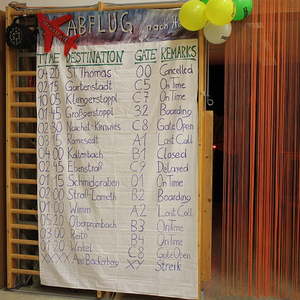 ABFLUG nach
TIME DESTINATION GATE REMARKS
04:20 St. Thomas 00 Cancelled
02:15 Gartenstadt C5 OnTime
10:05 Klengerstoppl C7 OnTime
01:45 Großgerstoppl 32 Boarding
02:30 C8 GateOpen
03:15 Ramesedt A1 Last Call
04:00 Kaltenbach B1 Closed
02:45 Ebenstroß C2 Delayed
01:15 Schmidgraben 01 OnTime
02:00 B2 Boarding
01:00 Wimm A2 Last Call
05:20 Oberbrombach B3 OnTime
03:00 Reith B4 OnTime
01:20 Winkel C8 GateOpen
XX:XX Ano Bäckerbay XY Streik